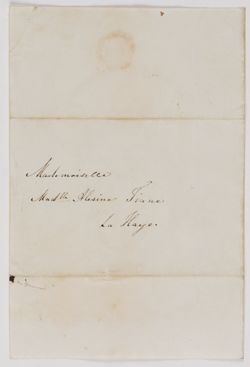 Mademoiselle
Madlle Alexine Tinne
La Haye.